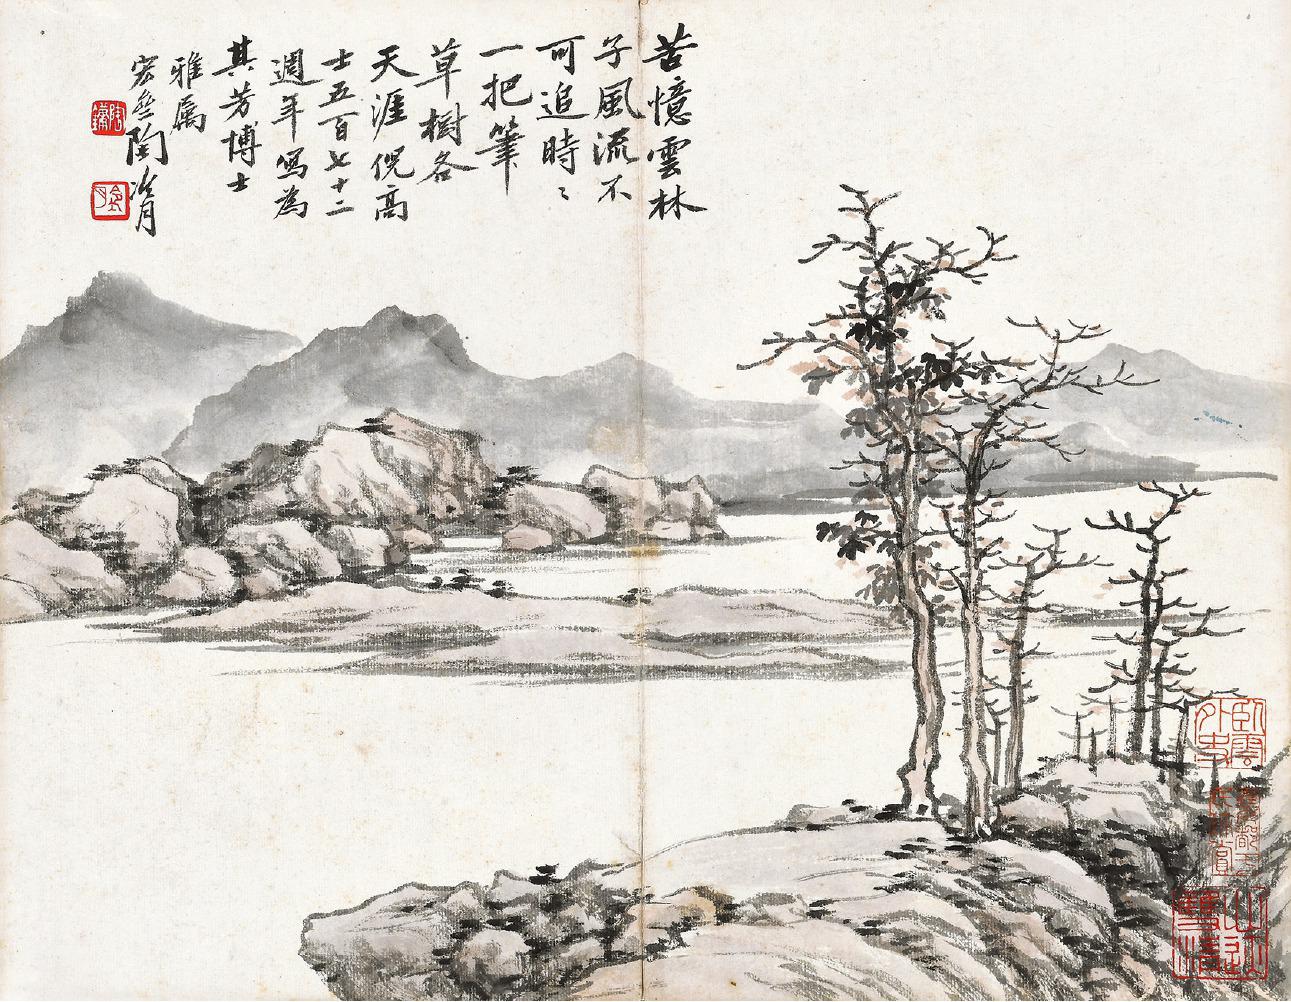 苦憶雲林
子風流不
可追時〻
一把筆
草樹各
天涯倪高
士五百七十二
週年寫為
其芳博士
雅属
宏 陶
陶鏞
臥雲
外史